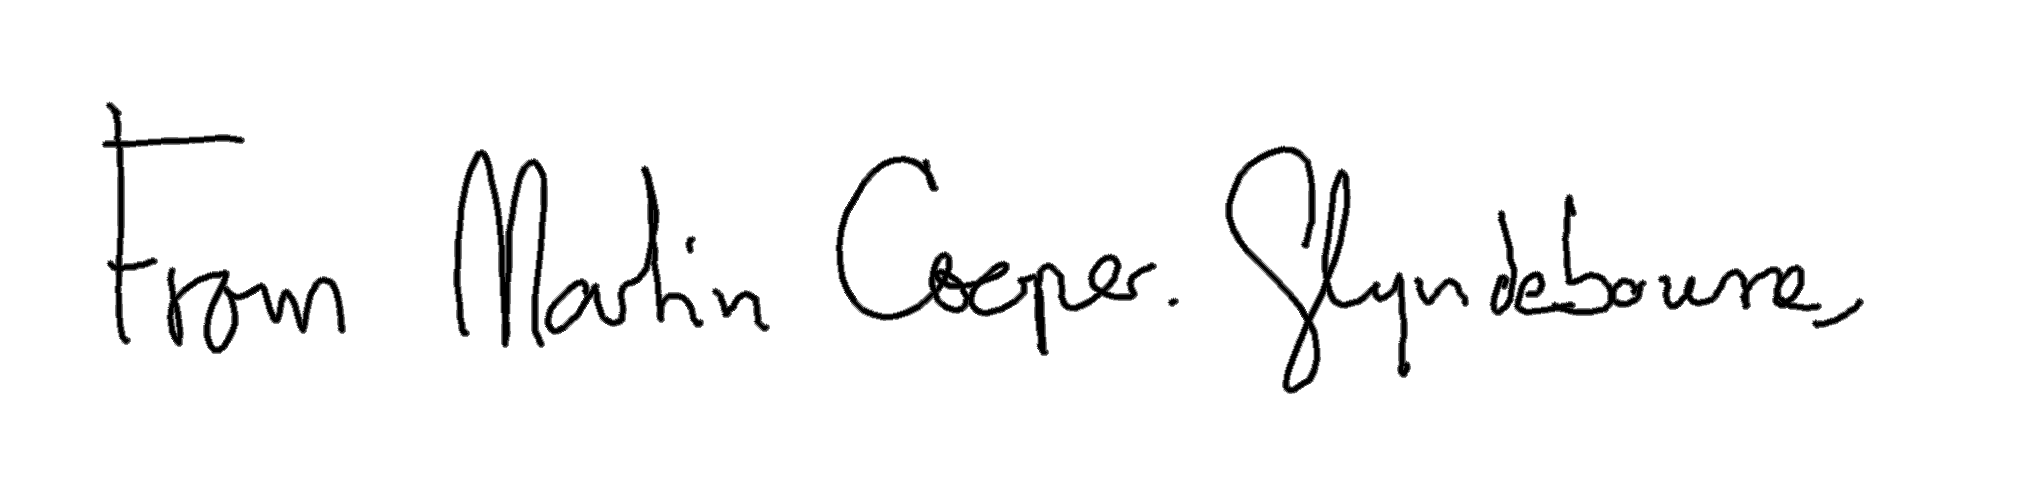 From Martin Cooper. Glyndebourne,